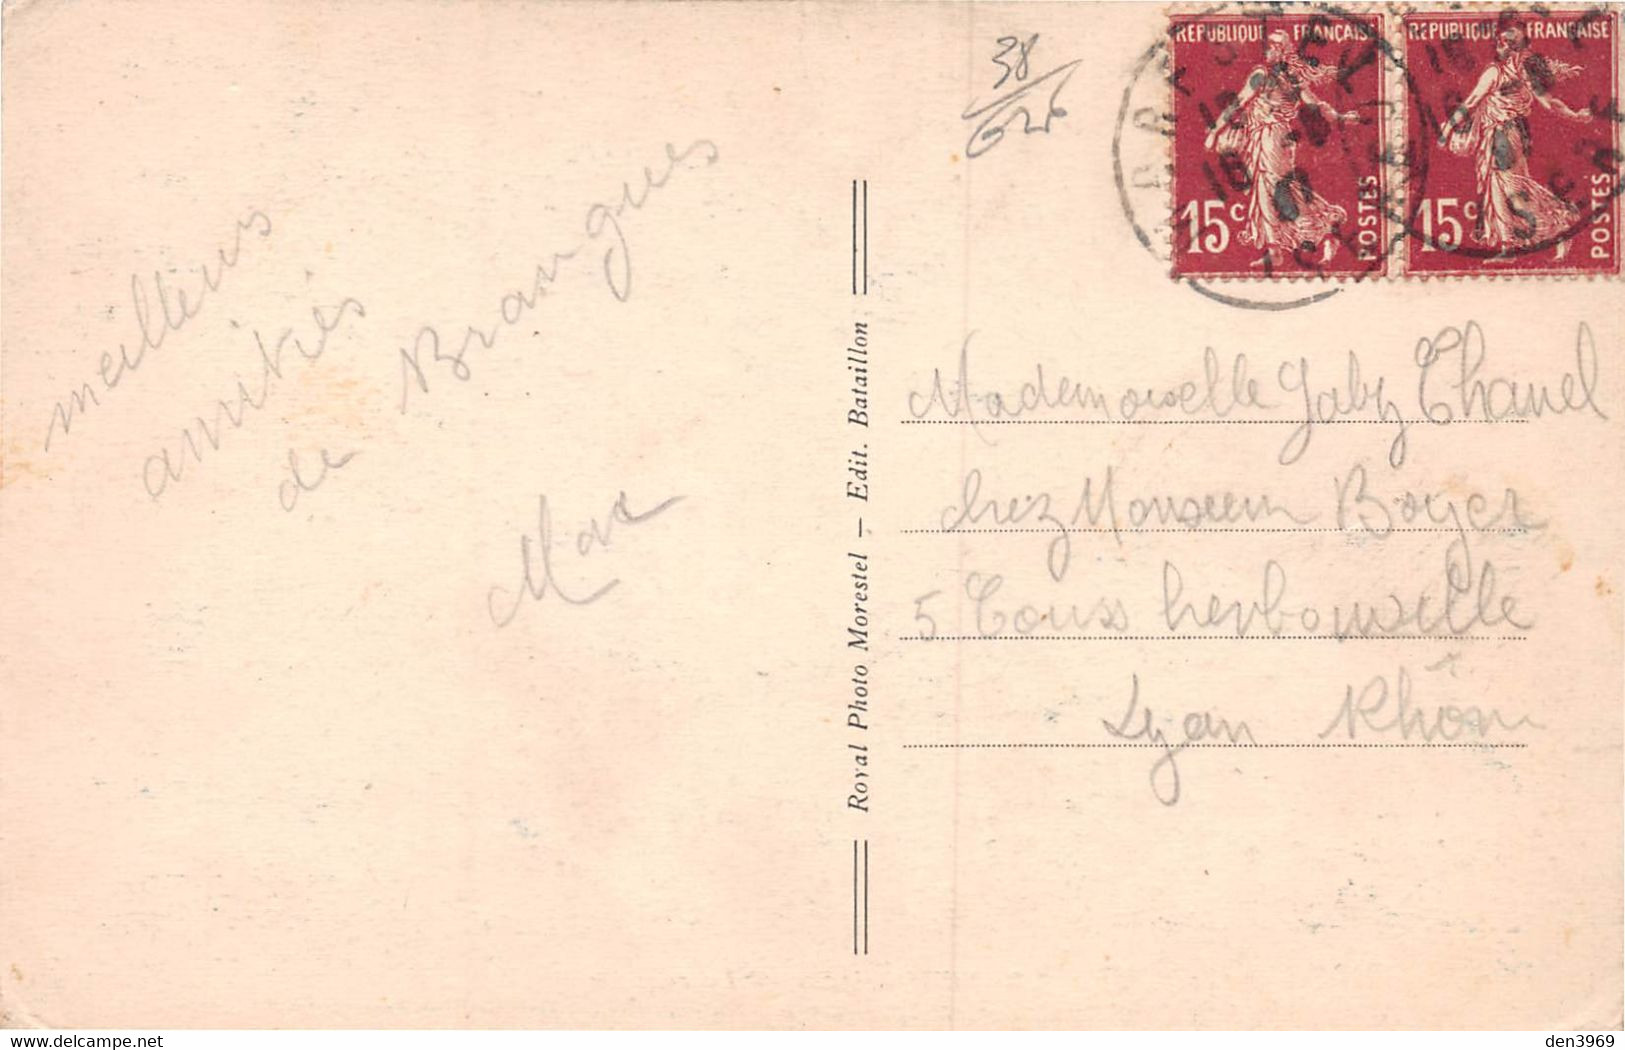 meilleurs
amitiés
de Brangues
Max
38
Royal Photo Morestel — Edit. Bataillon
REPUBLIQUE FRANÇAISE
15c
POSTES
REPUBLIQUE FRANÇAISE
15c
POSTES
ISERE
Mademoiselle Gaby Chanel
chez Monsieur Boyer
5 Cours herbouville
Lyon Rhône
den3969